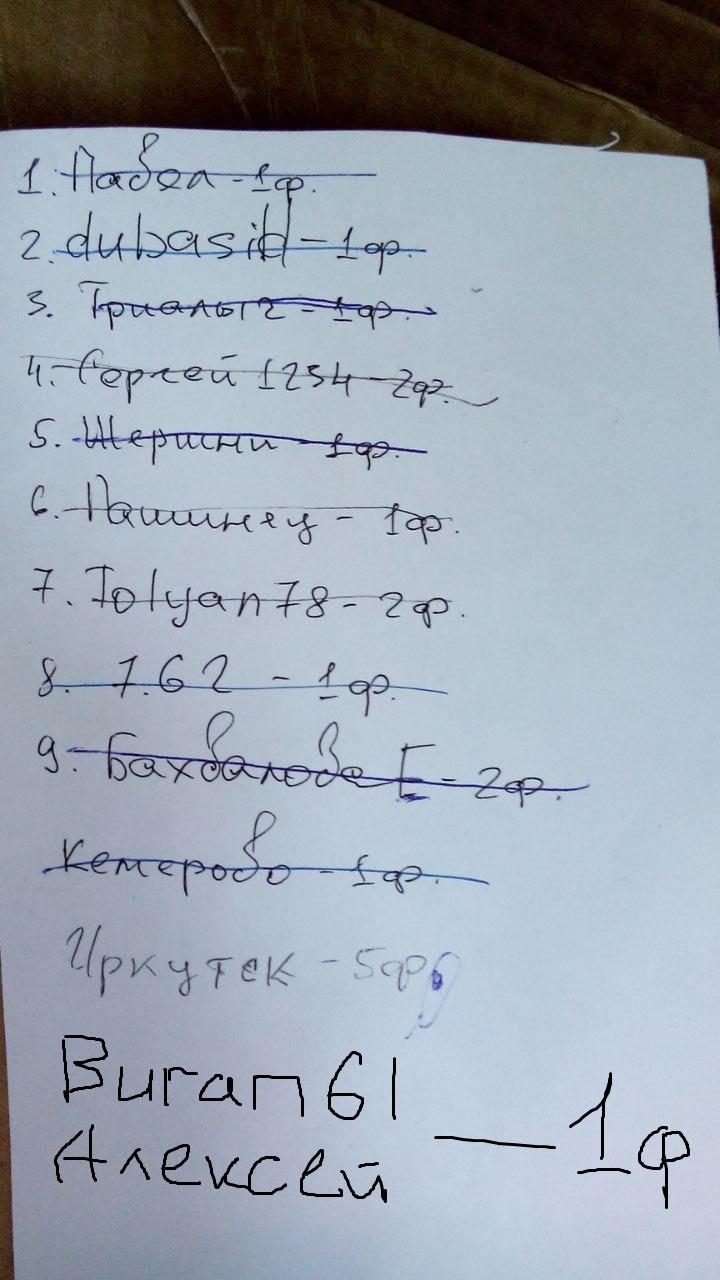 1. Павел - 1ф.
2. dubasid - 1ф.
3. Триалыч - 1ф.
4. Сергей 1254 - 2ф.
5. - 1ф.
6. Пашинец - 1ф.
7. Tolyan78 - 2ф.
8. 7.62 - 1ф.
9. Бахвалова Е - 2ф.
Кемерово - 1ф.
Иркутск - 5ф
Buran61
Алексей — 1ф